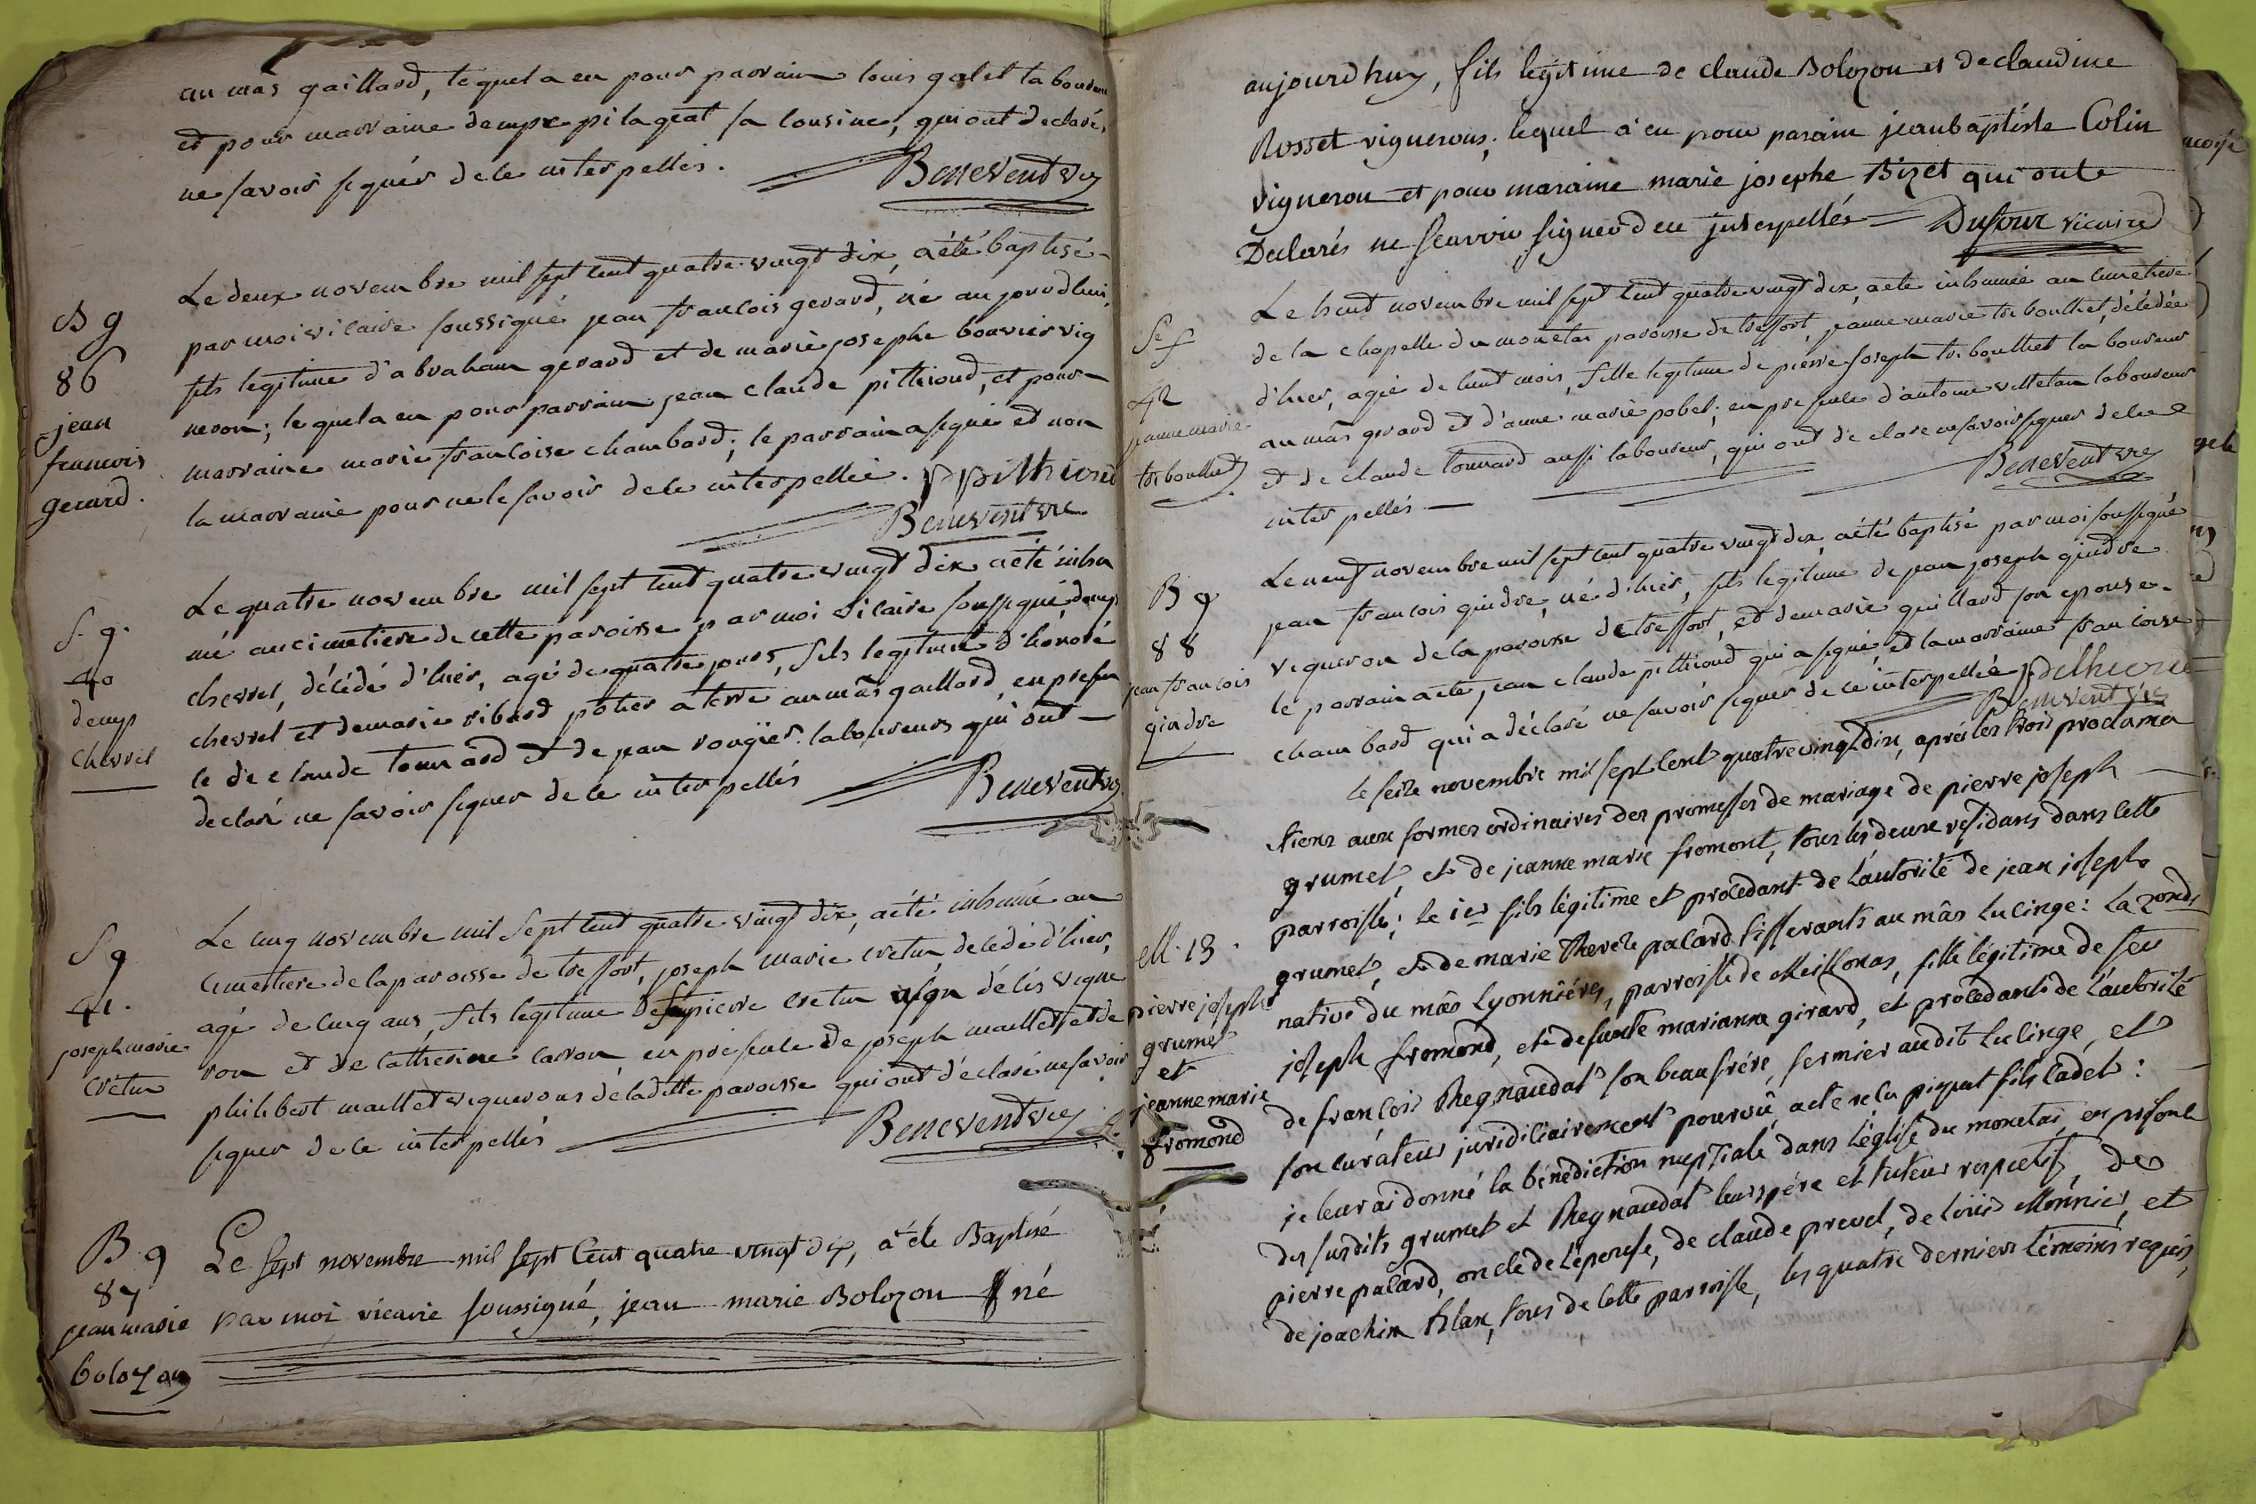 au mas gaillard, lequel a eu pour parrain louis galet laboureur
et pour marraine denyse pilagrat sa cousine, qui ont declarés
ne savoir signér de ce interpellés. Benevent vic
Le deux novembre mil sept cent quatre vingt dix, a été baptisé
B g
86
jean
francois
gerard.
par moi vicaire soussigné jean francois gerard, né aujourdhui,
fils legitime d'abraham gerard et de marie josephe bouvier vig
neron; lequel a eu pour parrain jean claude pithioud, et pour
marraine marie francoise chambard; le parrain a signé et non
la marraine pour ne le savoir de ce interpellée. pithioud
Benevent vic
Le quatre novembre mil sept cent quatre vingt dix a été inhu
S. g.
40
denys
chevrel
mé au cimetiere de cette paroisse par moi vicaire soussigné, denys
chevrel, décédé d'hier, agé de quatre jours, fils legitime d'honoré
chevrel et de marie ribard potier a terre au mâs gaillard, en presen
ce de claude tounard et de jean rougier laboureurs qui ont
declaré ne savoir signer de ce interpellés Benevent vic
Le cinq novembre mil sept cent quatre vingt dix, a été inhumé au
S g
41.
joseph marie
cretin
cimetiere de la paroisse de treffort, joseph marie cretin, décédé d'hier,
agé de cinq ans, fils legitime de pierre cretin vigne
ron et de catherine carron, en presence de joseph maillet et de
philibert maillet vignerons de la ditte paroisse qui ont déclaré ne savoir
signer de ce interpellés Benevent vic
B. g
87
jean marie
bolozon
Le sept novembre mil sept cent quatre vingt dix, a été Baptisé
par moi vicaire soussigné, jean marie Bolozon né
aujourdhuy, fils legitime de claude Bolozon et de claudine
Rosset vignerons; lequel a eu pour parain jean baptiste Colin
vigneron et pour maraine marie josephe Bizet qui ont
Declarés ne scavoir signer de ce interpellés Dufour vicaire
S f
42
jeanne marie
tribouillet
Le huit novembre mil sept cent quatre vingt dix, a été inhumée au cimetiere
de la chapelle du monetai paroisse de treffort, jeanne marie tribouillet, décédée
d'hier, agée de huit mois, fille legitime de pierre joseph tribouillet laboureur
au mâs gerard et d'anne marie pobel; en presence d'antoine villetan laboureur
et de claude tounard aussi laboureur, qui ont declaré ne savoir signer de ce
interpellés Benevent vic
B g
88
jean francois
gindre
Le neuf novembre mil sept cent quatre vingt dix, a été baptisé par moi soussigné
jean francois gindre, né d'hier, fils legitime de jean joseph gindre
vigneron de la paroisse de treffort, et de marie guillard son epouse.
le parrain a été, jean claude pithioud qui a signé, et la marraine francoise
chambard qui a déclaré ne savoir signer de ce interpellée pithioud
Benevent vic
M. 13.
pierre joseph
grumet
et
jeanne marie
fromond
le seize novembre mil sept cent quatre vingt dix, après les trois proclama
tions aux formes ordinaires des promesses de mariage de pierre joseph
grumet, et de jeanne marie fromont, tous les deux residans dans cette
parroisse; le 1er fils légitime et procedant de l'autorité de jean joseph
grumet, et de marie thereze palard tisserants au mâs lucinge: la 2onde
native du mâs lyonnières, parroisse de meillonas, fille légitime de feu
joseph fromond, et de defunte marianne girard, et procedante de l'autorité
de françois Regnaudat son beau frère, fermier au dit lucinge, et
son curateur juridiciairement pourvû, acte reçu piquet fils cadet:
je leur ai donné la bénédiction nuptiale dans l'église du monetai, en présence
des susdits grumet et Regnaudat leurs père et tuteur respectif, de
pierre palard, oncle de l'épouse, de claude prevel, de loüis Monnier, et
de joachin hilan, tous de cette parroisse, les quatre derniers témoins requis,